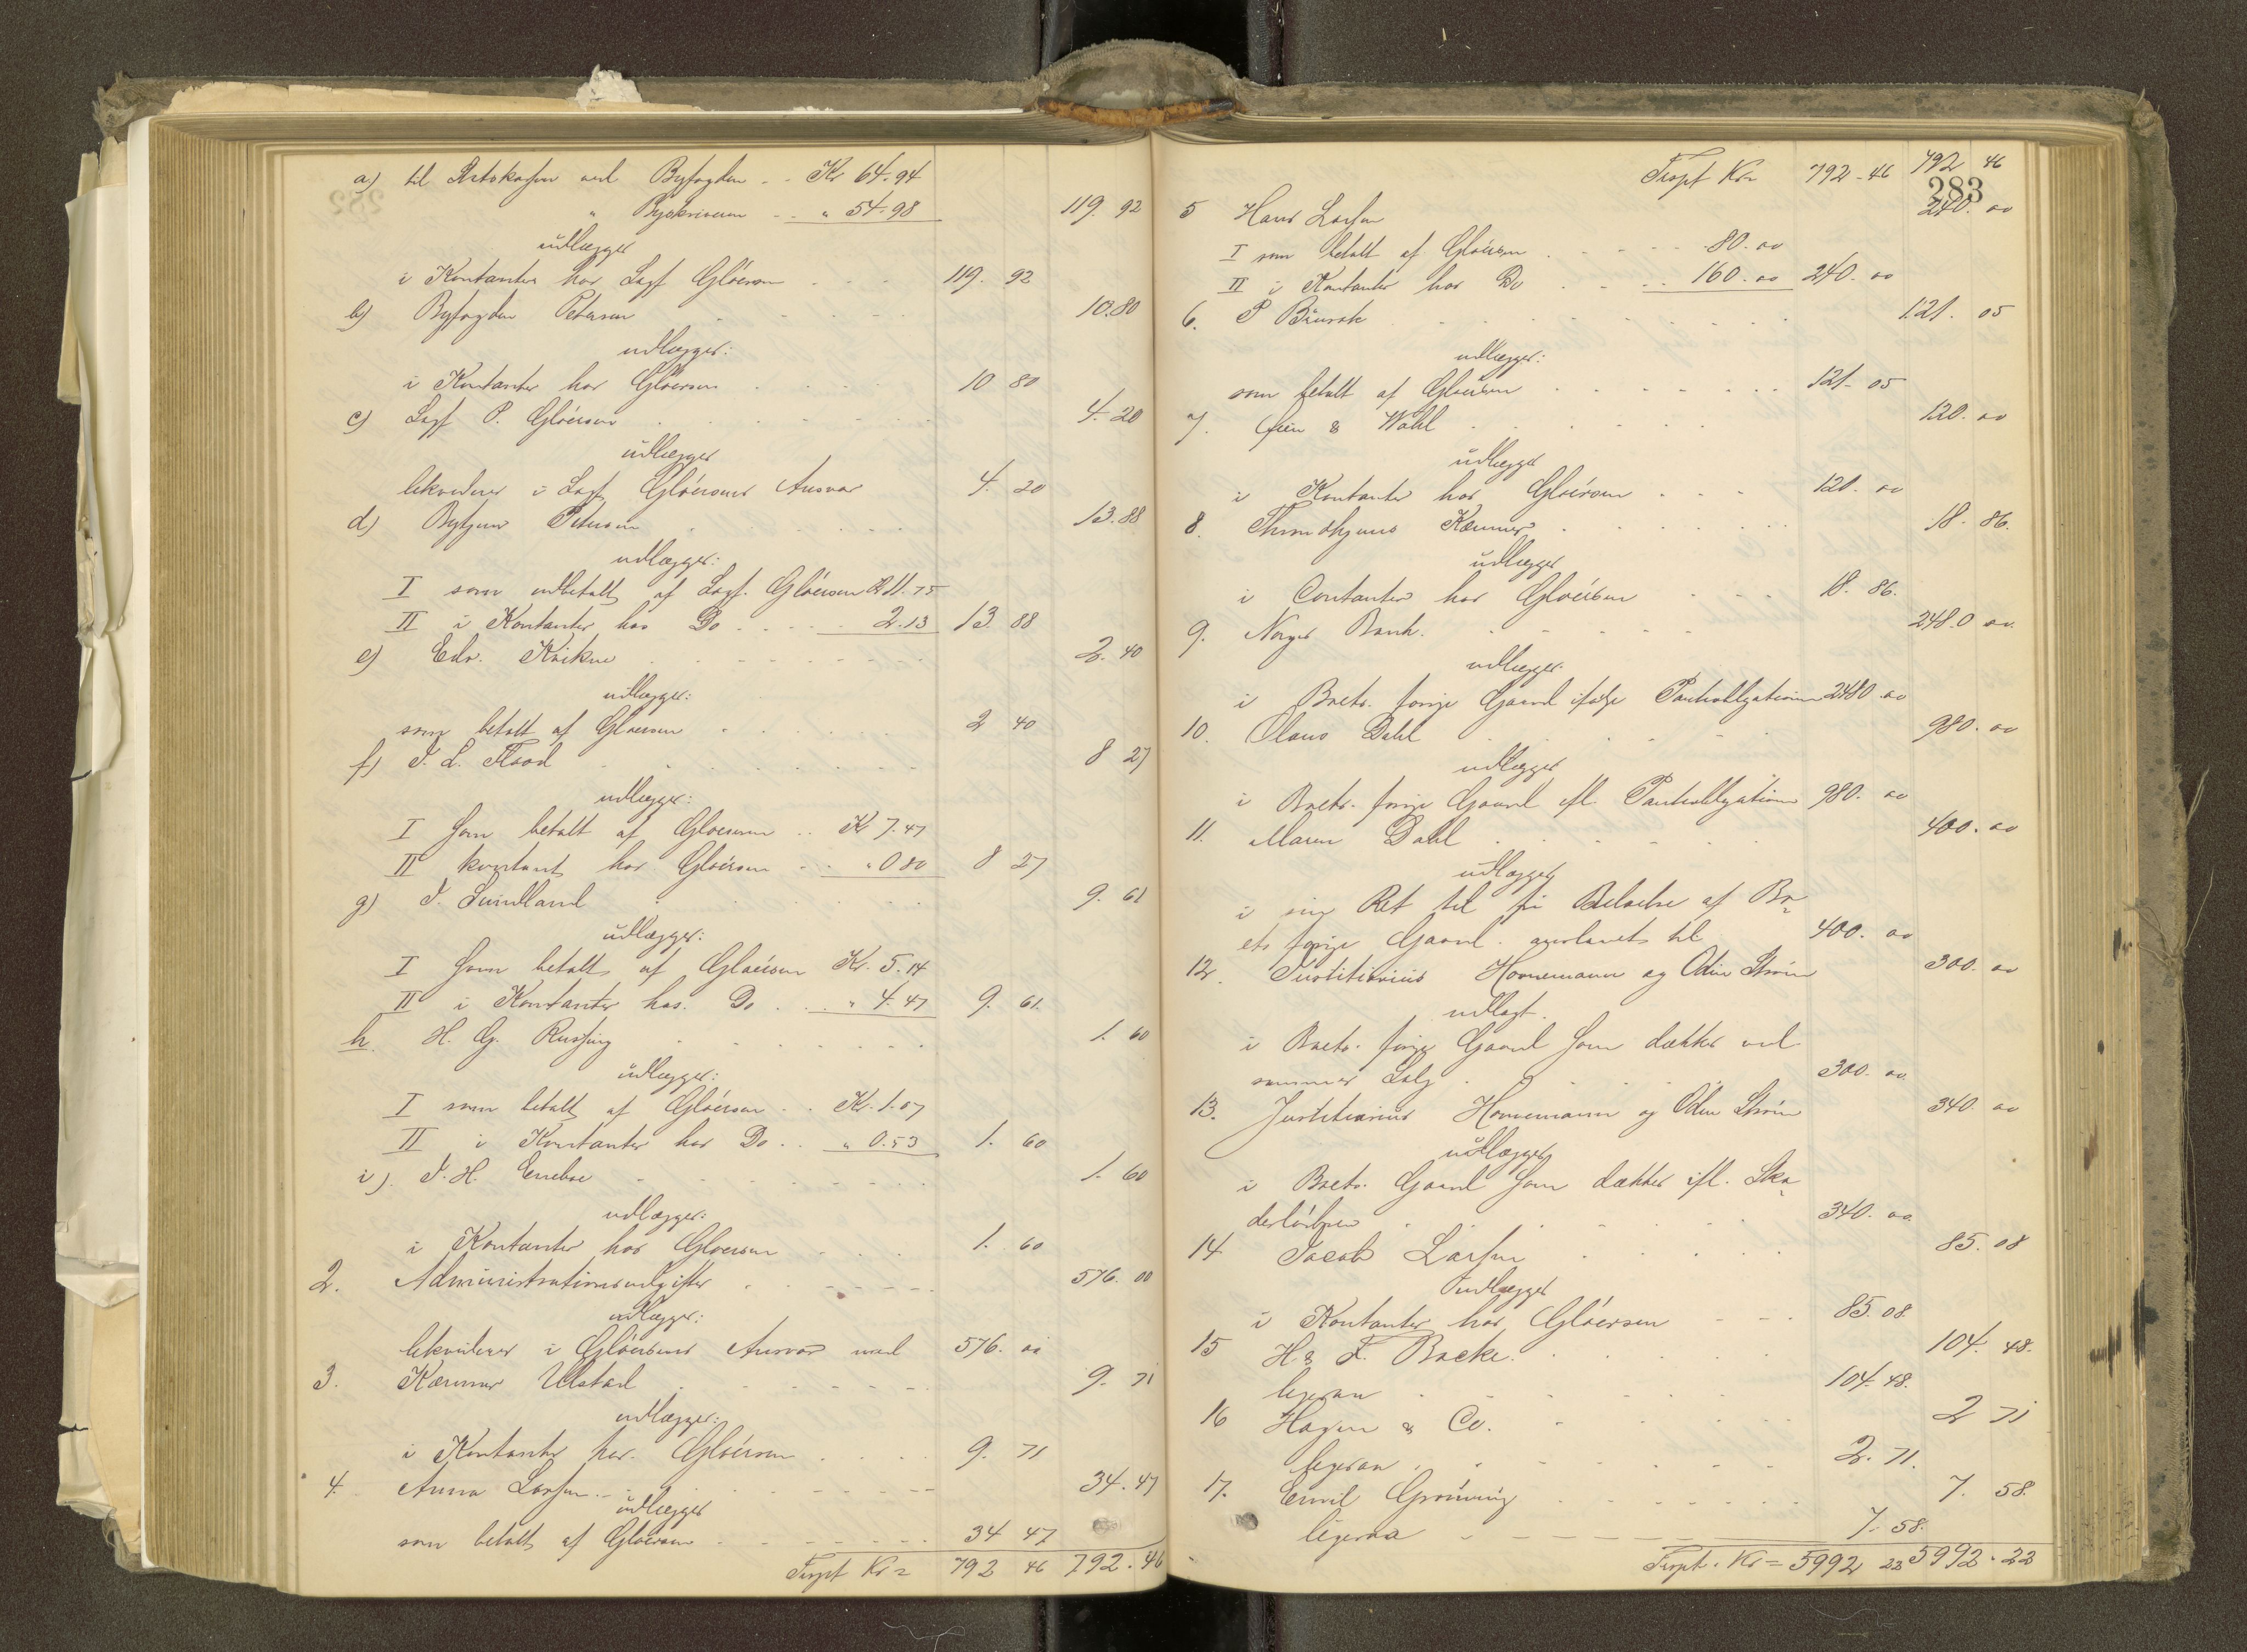 a) til Retskassen ved Byfogden - - Kr 64.94
" Byskriveren - - " 54.98 119. 92
udlægger
i Kontanter hos Sagf Gløersen . . . 119. 92
b) Byfogden Petersen . . . 10.80
udlægger:
i Kontanter hos Gløersen . . . 10 80
c) Sagf P. Gløersen . . . 4.20
udlægger
likviderer i Sagf. Gløersens Ansvar 4. 20
d) Petersen . . . 13.88
udlægger:
I som udbetalt af Sagf. Gløersen 11.75
II i Kontanter hos Do . . . 2.13 13. 88
e) Edv. . . . 2.40
udlægger:
som betalt af Gløersen . . . 2 40
f) J. L. Flood . . . 8 27
udlægger:
I Som betalt af Gløersen . . Kr 7.47
II kontant hos Gløersen - . " 0 80 8 27
g) J. Suindland . . . 9. 61
udlægger:
I Som betalt af Gløersen Kr. 5.14
II i Kontanter hos. Do . . . " 4.47 9. 61.
h. H. G. . . . 1. 60
udlægger:
I som betalt af Gløersen . . Kr. 1.07
II i Kontanter hos Do . . " 0.53 1. 60
i). J. H. . . . 1. 60
udlægger:
i Kontanter hos Gløersen . . . 1. 60
2. Administrationsudgifter . . . 576. 00
udlægger:
likviderer i Gløersens Ansvar med 576. 00
3. Kæmner Ulstad . . . 9. 71
udlægger:
i Kontanter hos. Gløersen . . . 9. 71
4. Anna Larsen . . . 34.47
udlægger
som betalt af Gløersen . . . 34 47
Trspt Kr = 792 46 792.46
Trspt Kr = 792-46 792 46
283
5 Hans Larsen 240. 00
I som betalt af Gløersen . . . 80. 00
II i Kontanter hos Do . . . 160. 00 240. 00
6. P . . . 121. 05
udlægger:
som betalt af Gløersen . . . 121- 05
7. & Wahl . . . 120. 00
udlægger
i Kontanter hos Gløersen . . . 120. 00
8. Throndhjems Kæmner . . . 18. 86.
udlægger
i Contanter hos Gløersen . . . 18. 86.
9. Norges Bank. . . . 2480 00.
udlægger.
i Boets. forige Gaard ifølge Panteobligation 2480.00
10. Olaus Dahl . . . 980. 00
udlægger
i Boets. forige Gaard ifl. Panteobligation 980. 00
11. Maren Dahl . . . 400. 00
udlægger
i sin Ret til fri Beboelse af Bo-
ets forige Gaard. anslaaet til 400. 00
12. Justitiarius Hornemann og Odin Strøm 300. 00
udlagt.
i Boets. forige Gaard som dækkes ved
sammes Salg . . . 300. 00.
13. Justitiarius Hornemann og Odin Strøm 340. 00
udlægger
i Boets. Gaard som dækkes ifl. Ska-
desløsbrev . . . 340. 00.
14 Jacob Larsen . . . 85. 08
udlægger
i Kontanter hos Gløersen - - - 85. 08.
15 H. & F. Backe. . . . 104. 48.
ligesaa . . . 104. 48.
16 Hagen & Co. . . . 2 71
ligesaa . . . 2. 71.
17. Emil Grønning . . . 7. 58.
ligesaa - - - 7. 58.
Trspt. Kr = 5992 22 5992.22